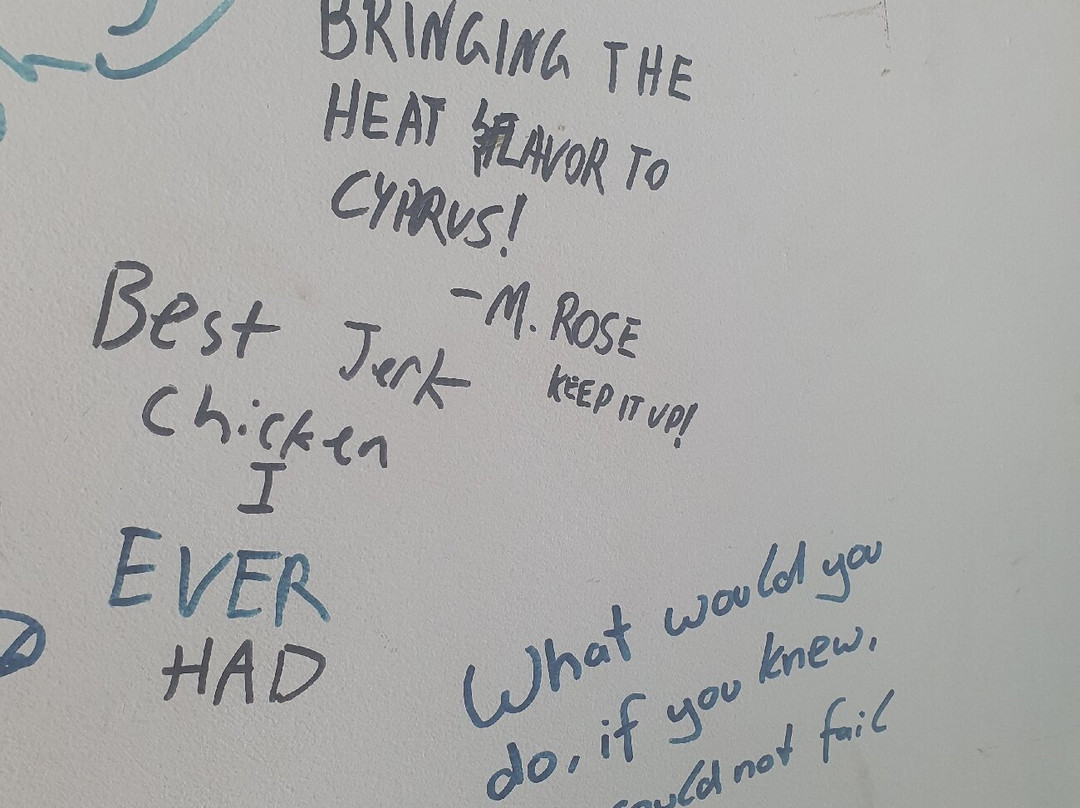 BRINGING THE
HEAT FLAVOR TO
CYPRUS!
-M. ROSE
KEEP IT UP!
Best Jerk
Chicken
I
EVER
HAD
What would you
do, if you knew,
could not fail